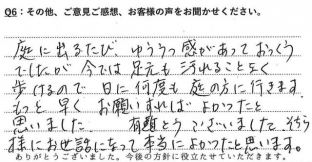 Q6：その他、ご意見ご感想、お客様の声をお聞かせください。
庭に出るたび、ゆううつ感があっておっくう
でしたが 今では 足元も 汚れることなく
歩けるので 日に何度も 庭の方に行きます。
もっと 早く お願いすれば よかったと
思いました 有難とうございました そちら
様にお世話になって 本当によかったと思います。
ありがとうございました。今後の方針に役立たせていただきます。